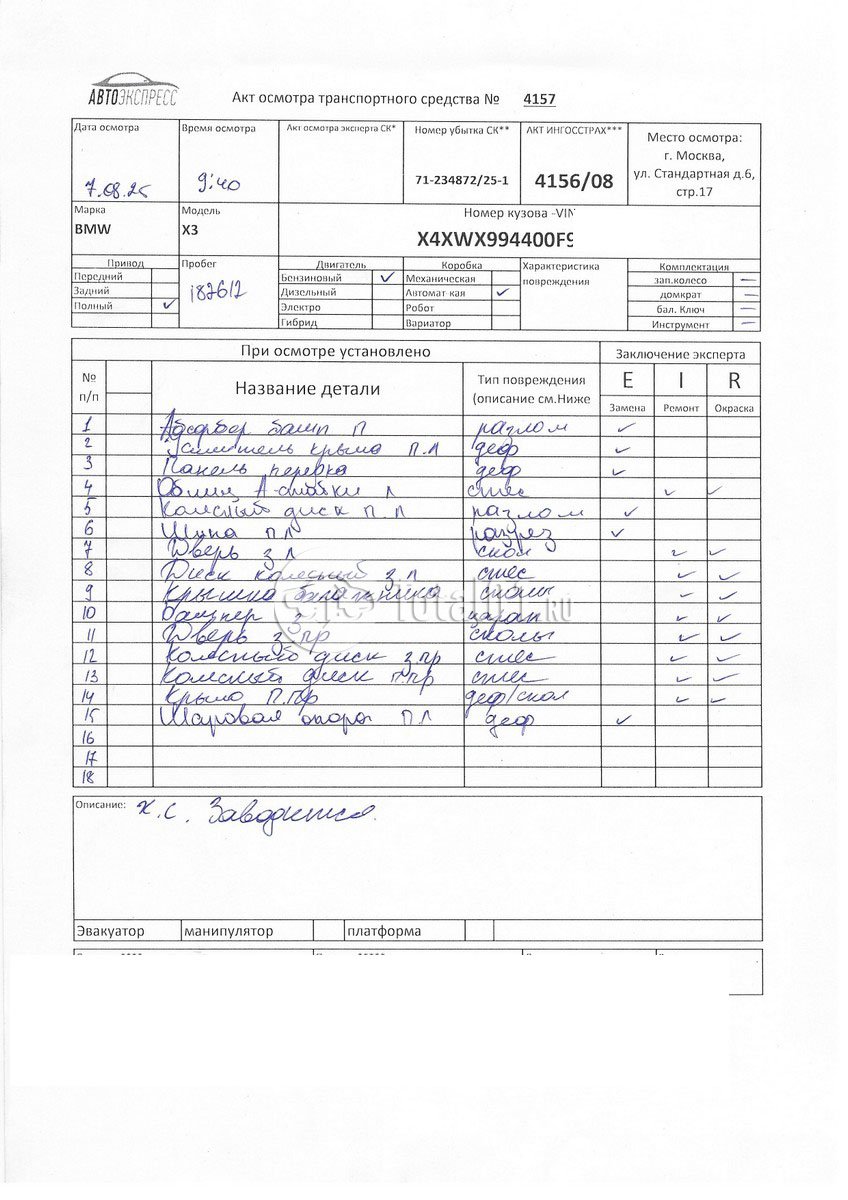 АВТОЭКСПРЕСС
Акт осмотра транспортного средства № 4157
Дата осмотра Время осмотра Акт осмотра эксперта СК* Номер убытка СК** АКТ ИНГОССТРАХ*** Место осмотра:
г. Москва,
ул. Стандартная д.6,
стр.17
7.08.25 9:40 71-234872/25-1 4156/08
Марка Модель Номер кузова -VIN
BMW X3 X4XWX994400F9
Привод Пробег Двигатель Коробка Характеристика повреждения Комплектация
Передний Бензиновый ✓ Механическая зап.колесо —
Задний 187612 Дизельный Автомат-кая ✓ домкрат —
Полный ✓ Электро Робот бал. Ключ —
Гибрид Вариатор Инструмент —
При осмотре установлено Заключение эксперта
№ п/п Название детали Тип повреждения (описание см.Ниже E I R
Замена Ремонт Окраска
1 Абсорбер бамп П разлом ✓
2 Усилитель крыла П.Л деф ✓
3 Панель передка деф ✓
4 Облиц А-стойки л стес ✓ ✓
5 Колесный диск П Л разлом ✓
6 Шина П Л разрез ✓
7 Дверь з Л скол ✓ ✓
8 Диск колесный з л стес ✓ ✓
9 Крышка багажника сколы ✓ ✓
10 Бампер з царап ✓ ✓
11 Дверь з.пр сколы ✓ ✓
12 Колесный диск з.пр стес ✓ ✓
13 Колесный диск п.пр стес ✓ ✓
14 Крыло П.Пр деф/скол ✓ ✓
15 Шаровая опора П Л деф ✓
16
17
18
Описание: х.с. Заводится.
Эвакуатор манипулятор платформа
Total01.RU